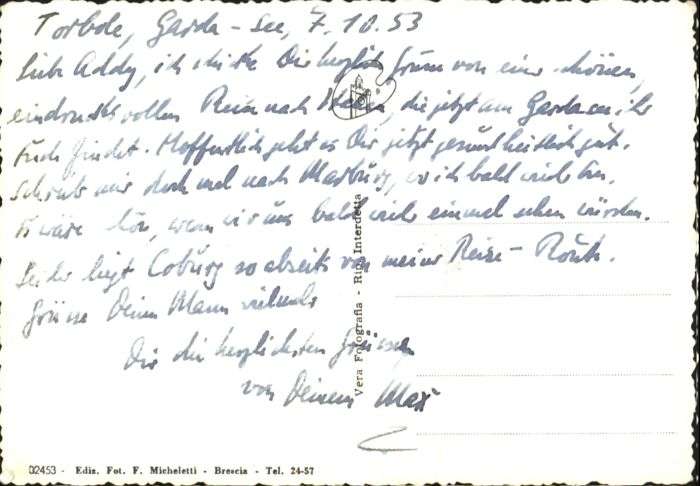 Torbole, Garda-See, 7.10.53
Liebe Addy, ich schicke Dir herzliche Grüsse von einer schönen,
eindrucksvollen Reise nach Italien, die jetzt am Gardasee ihr
Ende findet. Hoffentlich geht es Dir jetzt gesundheitlich gut.
Schreib mir doch mal nach Marburg, wo ich bald wieder bin.
Es wäre schön, wenn wir uns bald wieder einmal sehen würden.
Leider liegt Coburg so abseits von meiner Reise-Route.
Grüsse Deinen Mann vielmals
Dir die herzlichsten Grüsse
von Deinem Max
Vera Fotografia - Rip. Interdetta
02453 - Ediz. Fot. F. Micheletti - Brescia - Tel. 24-57